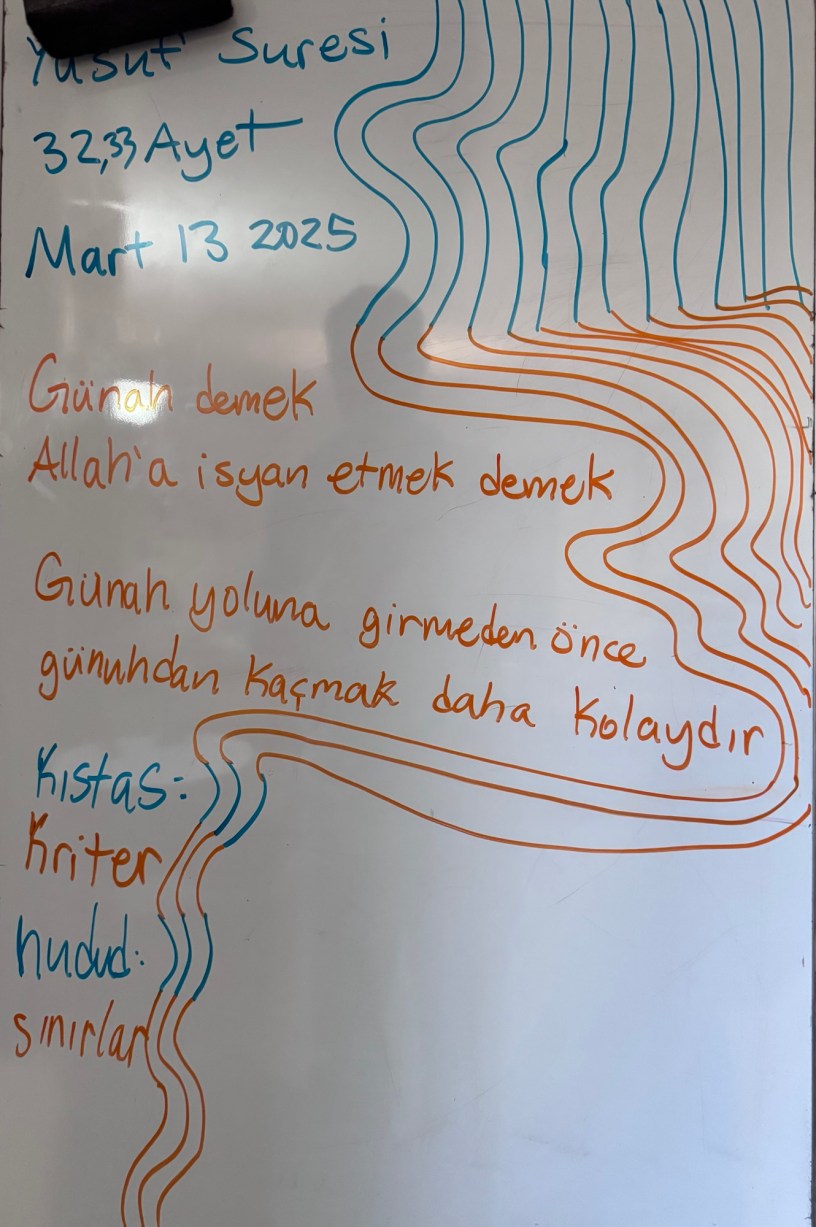 Yusuf Suresi
32,33 Ayet
Mart 13 2025
Günah demek
Allah'a isyan etmek demek
Günah yoluna girmeden önce
günuhdan kaçmak daha kolaydır
Kıstas:
Kriter
hudud:
sınırlar